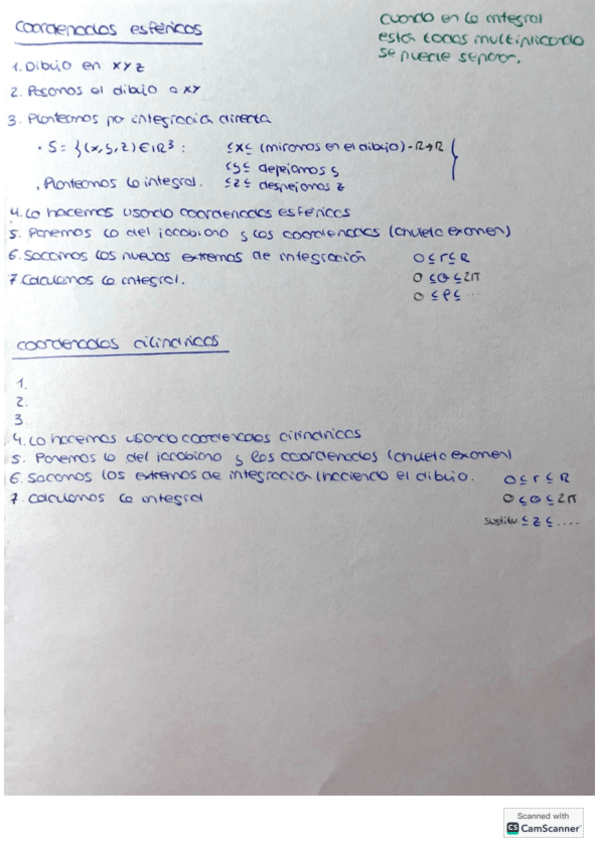 coordenadas esféricas
cuando en la integral
está todas multiplicando
se puede separar.
1. Dibujo en xyz
2. Pasamos el dibujo a xy
3. Planteamos por integración directa
· S = {(x,y,z) ∈ ℝ³ : ≤x≤ (miramos en el dibujo) -R→R }
≤y≤ depejamos y
· Planteamos la integral. ≤z≤ despejamos z
4. Lo hacemos usando coordenadas esféricas
5. Ponemos lo del jacobiano y las coordenadas (chuleta examen)
6. Sacamos los nuevos extremos de integración 0≤r≤R
7. Calculamos la integral. 0≤θ≤2π
0≤φ≤...
coordenadas cilíndricas
1.
2.
3.
4. Lo hacemos usando coordenadas cilíndricas
5. Ponemos lo del jacobiano y las coordenadas (chuleta examen)
6. Sacamos los extremos de integración (haciendo el dibujo. 0≤r≤R
7. Calculamos la integral 0≤θ≤2π
sustitu ≤z≤....
Scanned with
CS CamScanner